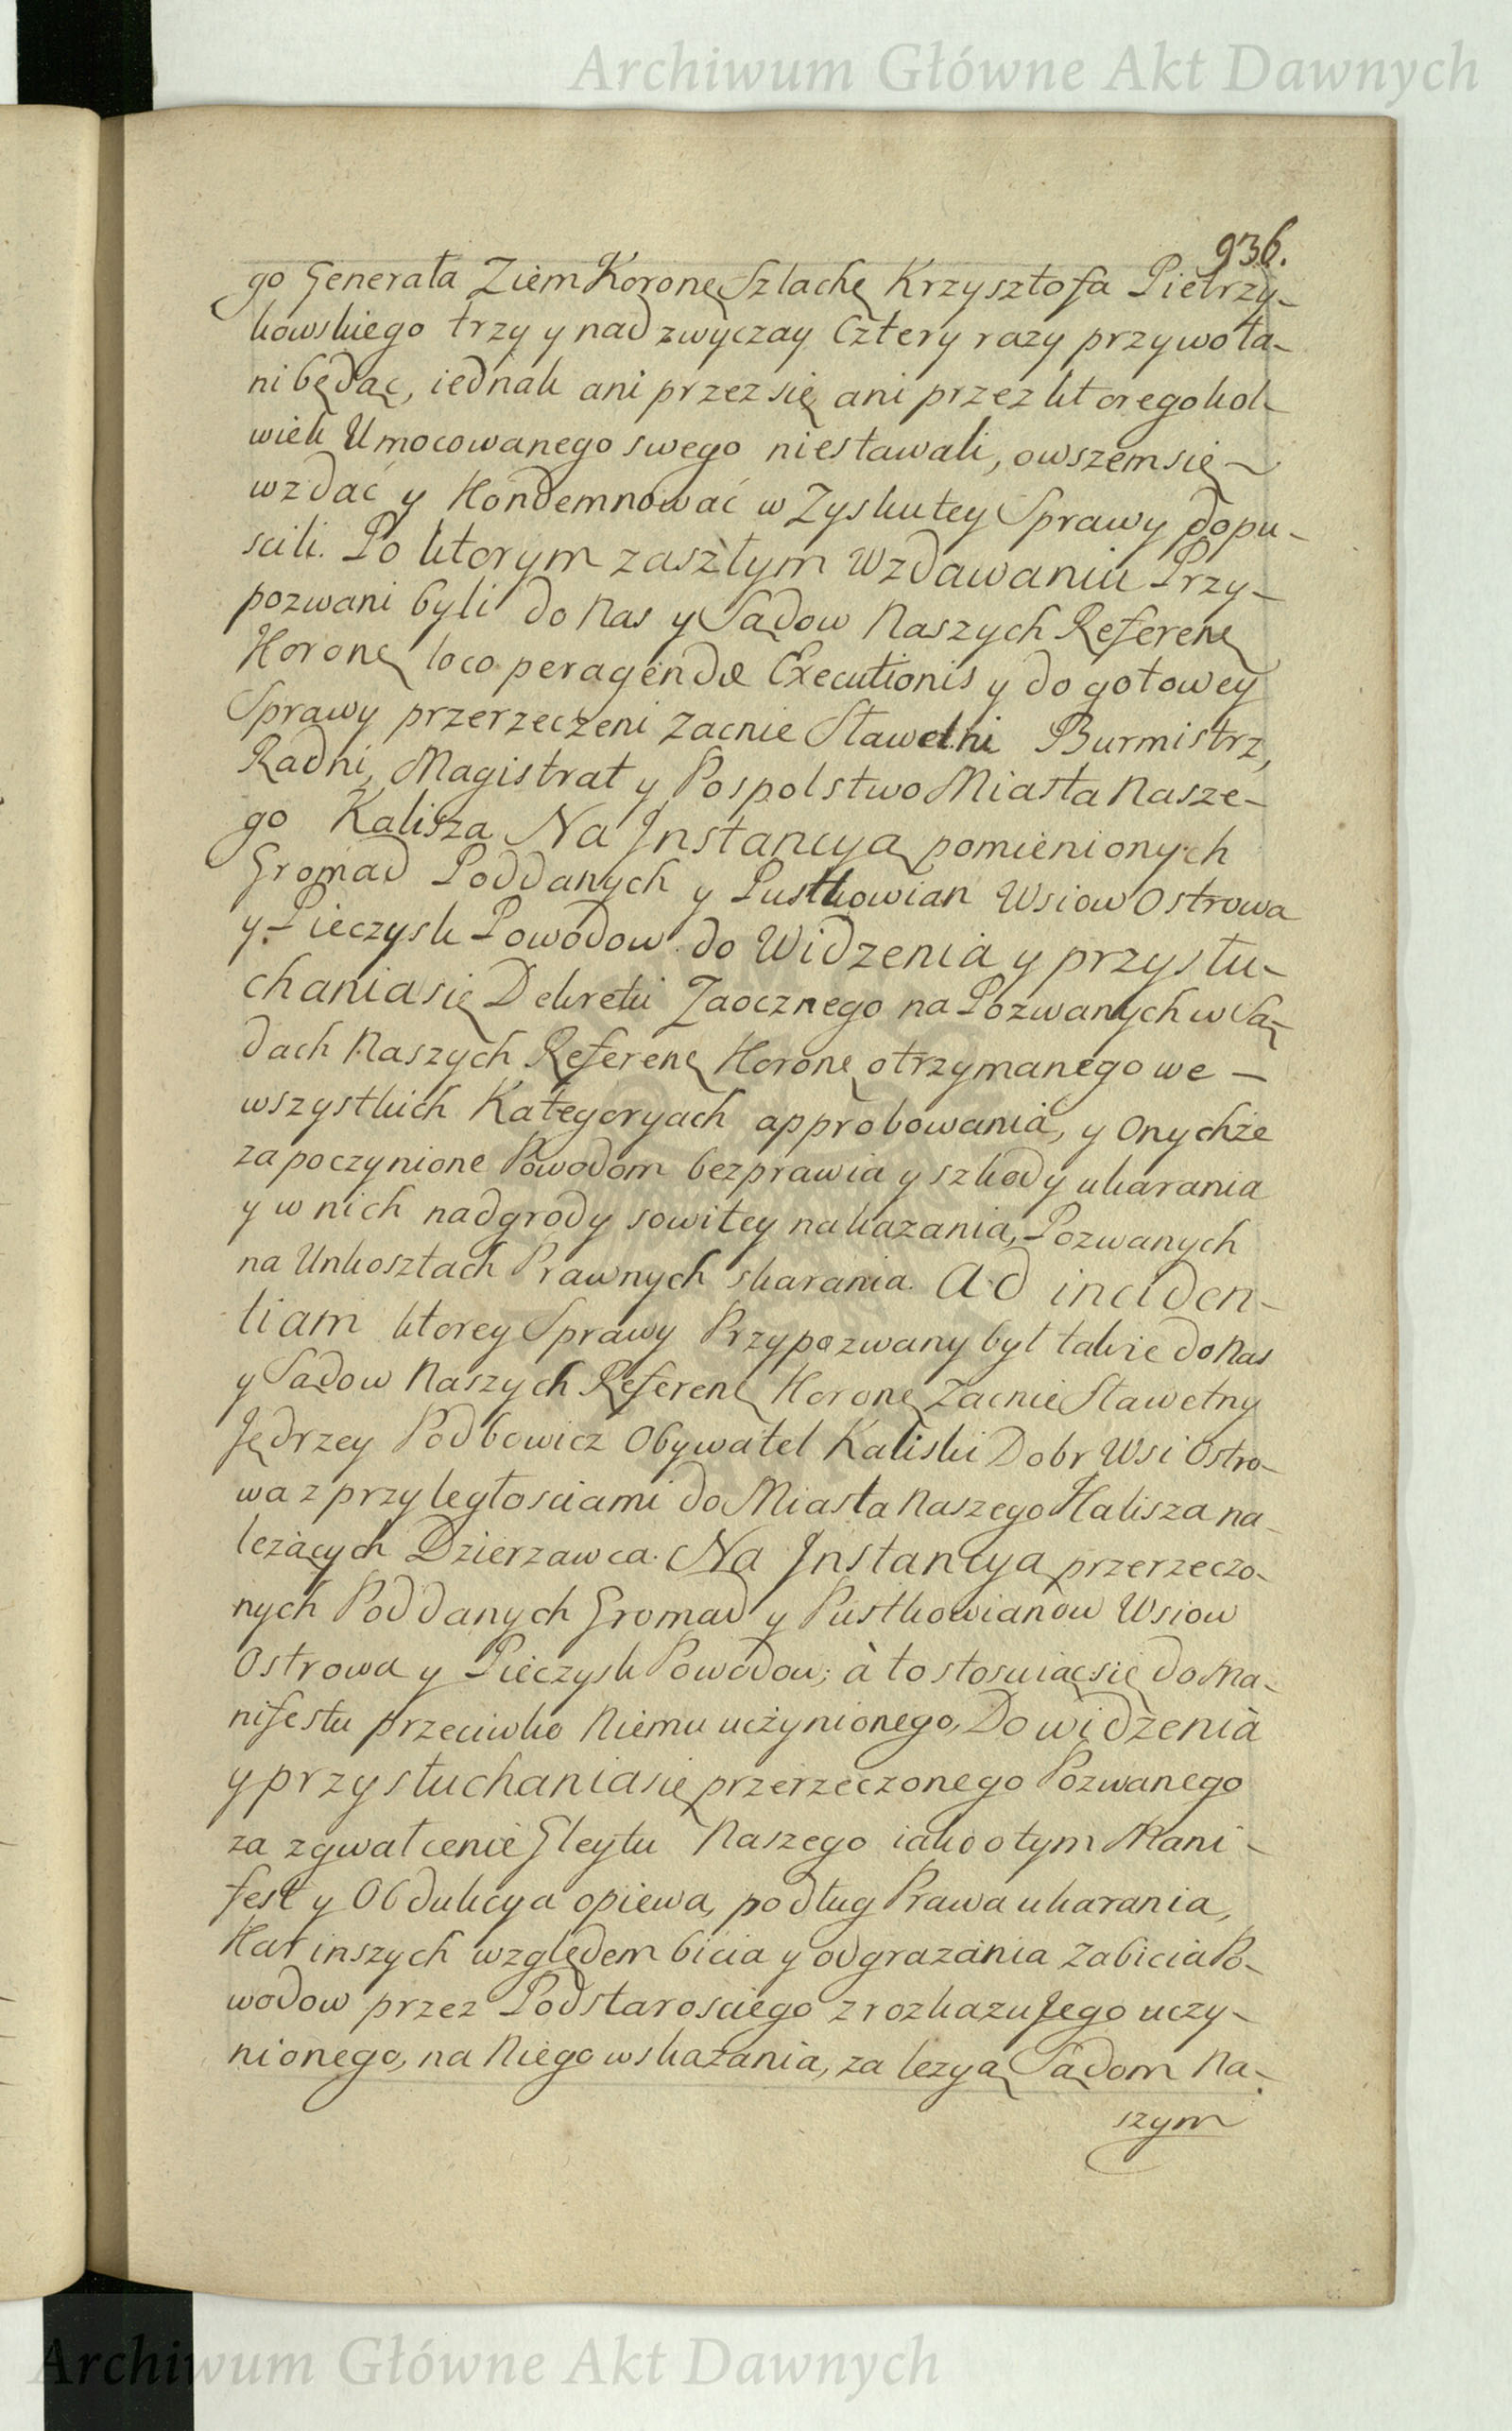 Archiwum Główne Akt Dawnych
936.
go Generała Ziem Koronę Szlachę Krzysztofa Pietrzy-
kowskiego trzy y nad zwyczay cztery razy przywoła-
ni będąc, iednak ani przez się ani przez ktoregokol-
wiek Umocowanego swego niestawali, owszem się
wzdać y Kondemnować w Zysku tey Sprawy dopu-
scili. Po ktorym zaszłym Wzdawaniu Przy-
pozwani byli do Nas y Sądow Naszych Referenę
Koronę loco peragendæ Executionis y do gotowey
Sprawy przerzeczeni Zacnie Sławetni Burmistrz,
Radni, Magistrat y Pospolstwo Miasta Nasze-
go Kalisza Na Jnstancyą pomienionych
Gromad Poddanych y Pustkowian Wsiow Ostrowa
y Pieczysk Powodow do Widzenia y przysłu-
chania się Dekretu Zaocznego na Pozwanych w Są-
dach Naszych Referenę Koronę otrzymanego we -
wszystkich Kategoryach approbowania, y Onychże
za poczynione Powodom bezprawia y szkody ukarania
y w nich nadgrody sowitey nakazania, Pozwanych
na Unkosztach Prawnych skarania. Ad inciden-
tiam ktorey Sprawy Przypozwany był także do Nas
y Sądow Naszych Referenę Koronę Zacnie Sławetny
Jędrzey Podbowicz Obywatel Kaliski Dobr Wsi Ostro-
wa z przyległosciami do Miasta Naszego Kalisza na-
leżących Dzierzawca. Na Jnstancyą przerzeczo-
nych Poddanych Gromad y Pustkowianow Wsiow
Ostrowa y Pieczysk Powodow; à to stosuiąc się do Ma-
nifestu przeciwko Niemu uczynionego, Do widzenia
y przysłuchania się przerzeczonego Pozwanego
za zgwałcenie Gleytu Naszego iako o tym Mani-
fest y Obdukcya opiewa, podług Prawa ukarania,
Kar inszych względem bicia y odgrazania zabicia Po-
wodow przez Podstarosciego z rozkazu Jego uczy-
nionego, na Niego wskazania, za lezyą Sądom Na-
szym
Archiwum Główne Akt Dawnych